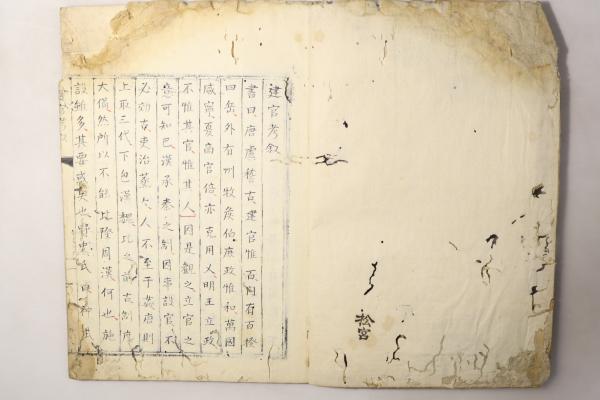 松宮
建官考叙
書曰唐虞稽古建官惟百内有百揆
四岳外有州牧侯伯庶政惟和萬國
咸寧夏商官倍亦克用乂明王立政
不惟其官惟其人因是觀之立官之
意可知已漢承秦之制因事設官不
必効古吏治蒸々人不至于 唐則
上取三代下包漢魏比之前古制度
大備然所以不能比隆周漢何也施
設雖多其要或失也 氏